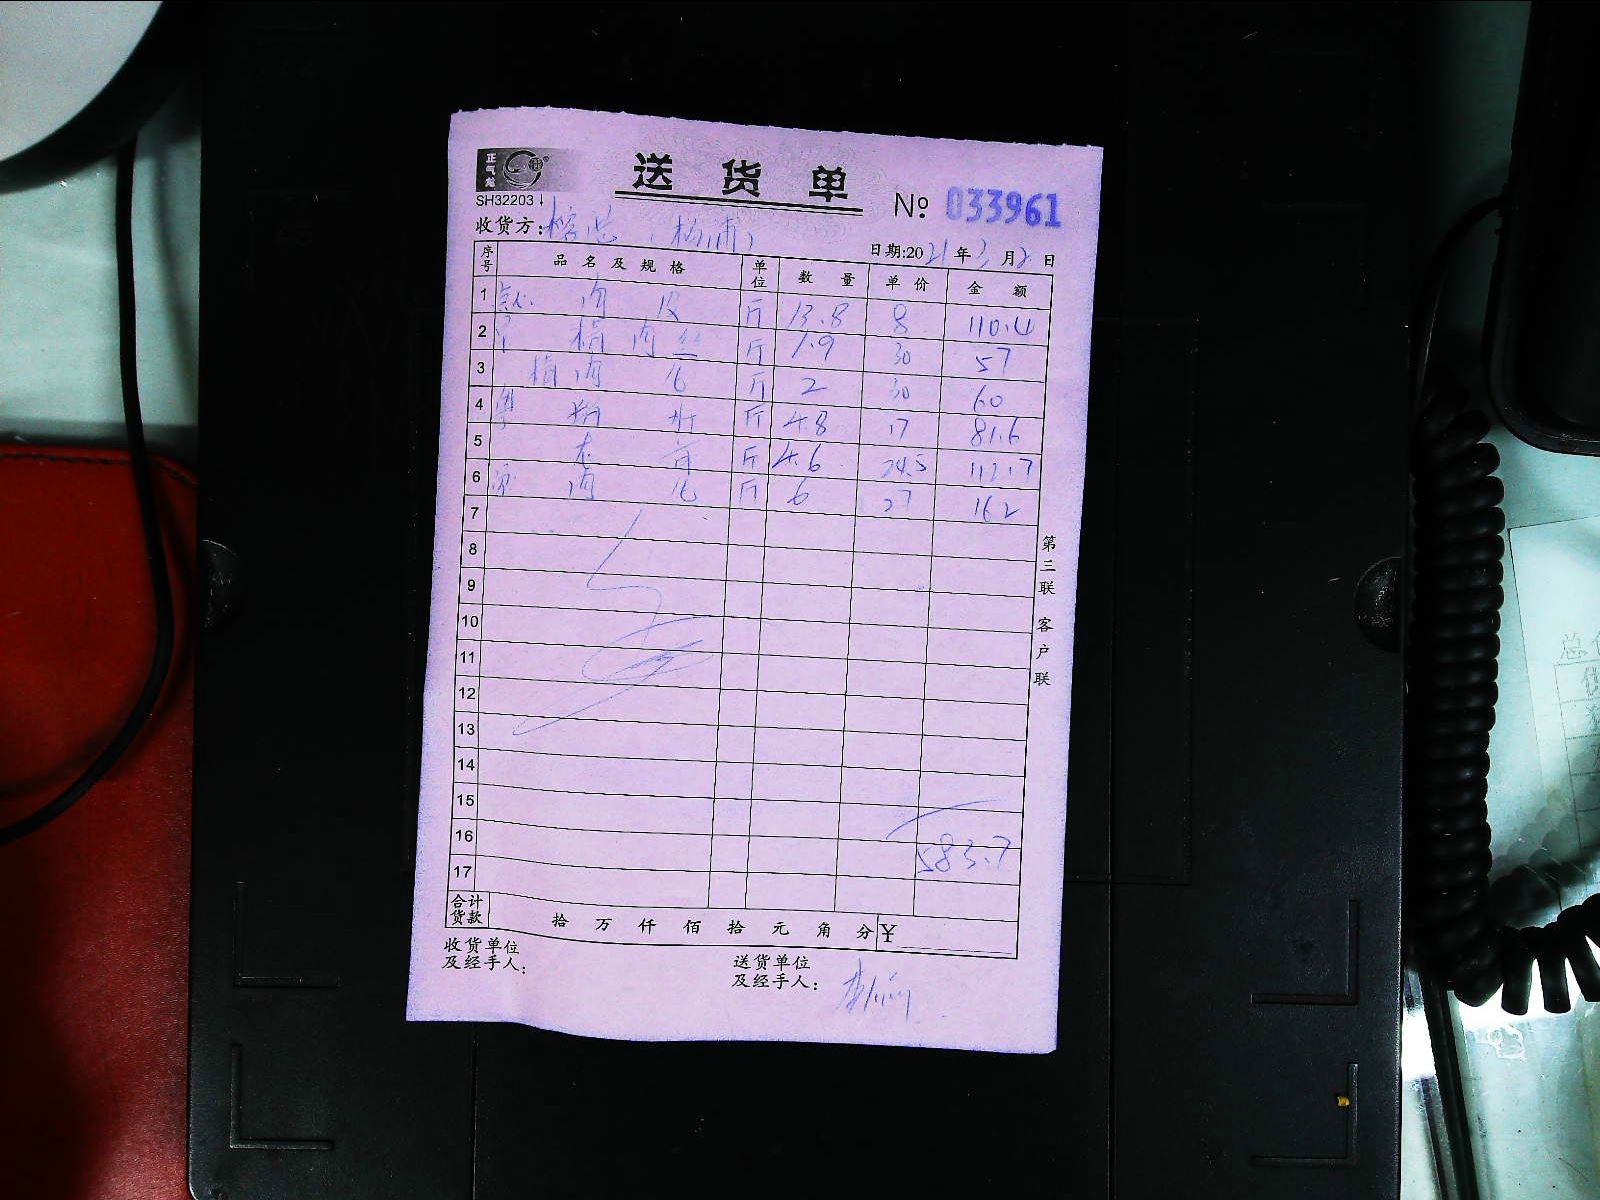 正气
送货单
SH32203
№ 033961
收货方: （杨浦）
日期:2021年3月2日
序号 品名及规格 单位 数量 单价 金额
1 肉皮 斤 13.8 8 110.4
2 肉丝 斤 1.9 30 57
3 梅肉 斤 2 30 60
4 斤 4.8 17 81.6
5 斤 4.6 24.5 112.7
6 肉 斤 6 27 162
7
8
9
10
11
12
13
14
15
16 583.7
17
合计货款 拾万仟佰拾元角分 ¥
收货单位及经手人:
送货单位及经手人:
第三联 客户联